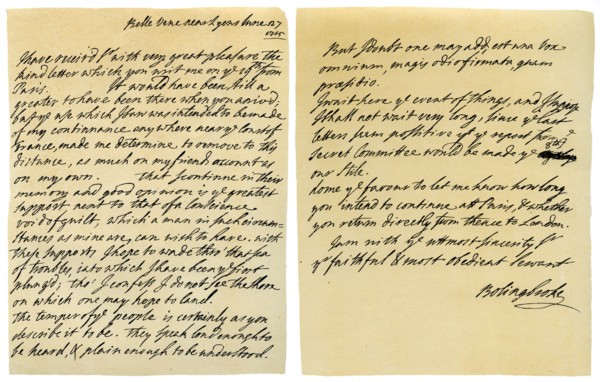 Belle Vene near Lyons June 27
1715
I have receiv'd Sr. with very great pleasure the
kind letter which you writ me on ye 19th. from
Paris. It would have been still a
greater to have been there when you arriv'd;
but ye use which I saw was intended to be made
of my continuance any where near ye Coast of
France, made me determine to remove to this
distance, as much on my friends account as
on my own. that I continue in their
memory and good opinion is ye greatest
support next to that of a Conscience
void of guilt, which a man in such circum=
stances as mine are, can wish to have. with
these supports I hope to wade thro' that sea
of troubles into which I have been ye first
plung'd; tho' I confess I do not see the shore
on which one may hope to land.
The temper of ye people is certainly as you
describe it to be. They speak loud enough to
be heard, & plain enough to be understood.
But I doubt one may add, est una vox
omnium, magis odio firmata, quam
præsidio.
I wait here ye event of things, and I suppose
I shall not wait very long, since ye last
letters seem possitive yt ye report from ye
Secret Committee would be made ye 8th
our Stile.
ye favour to let me know how long
you intend to continue att Paris, & whether
you return directly from thence to London.
I am with ye uttmost sincerity Sr
yr faithful & most obedient servant
Bolingbroke